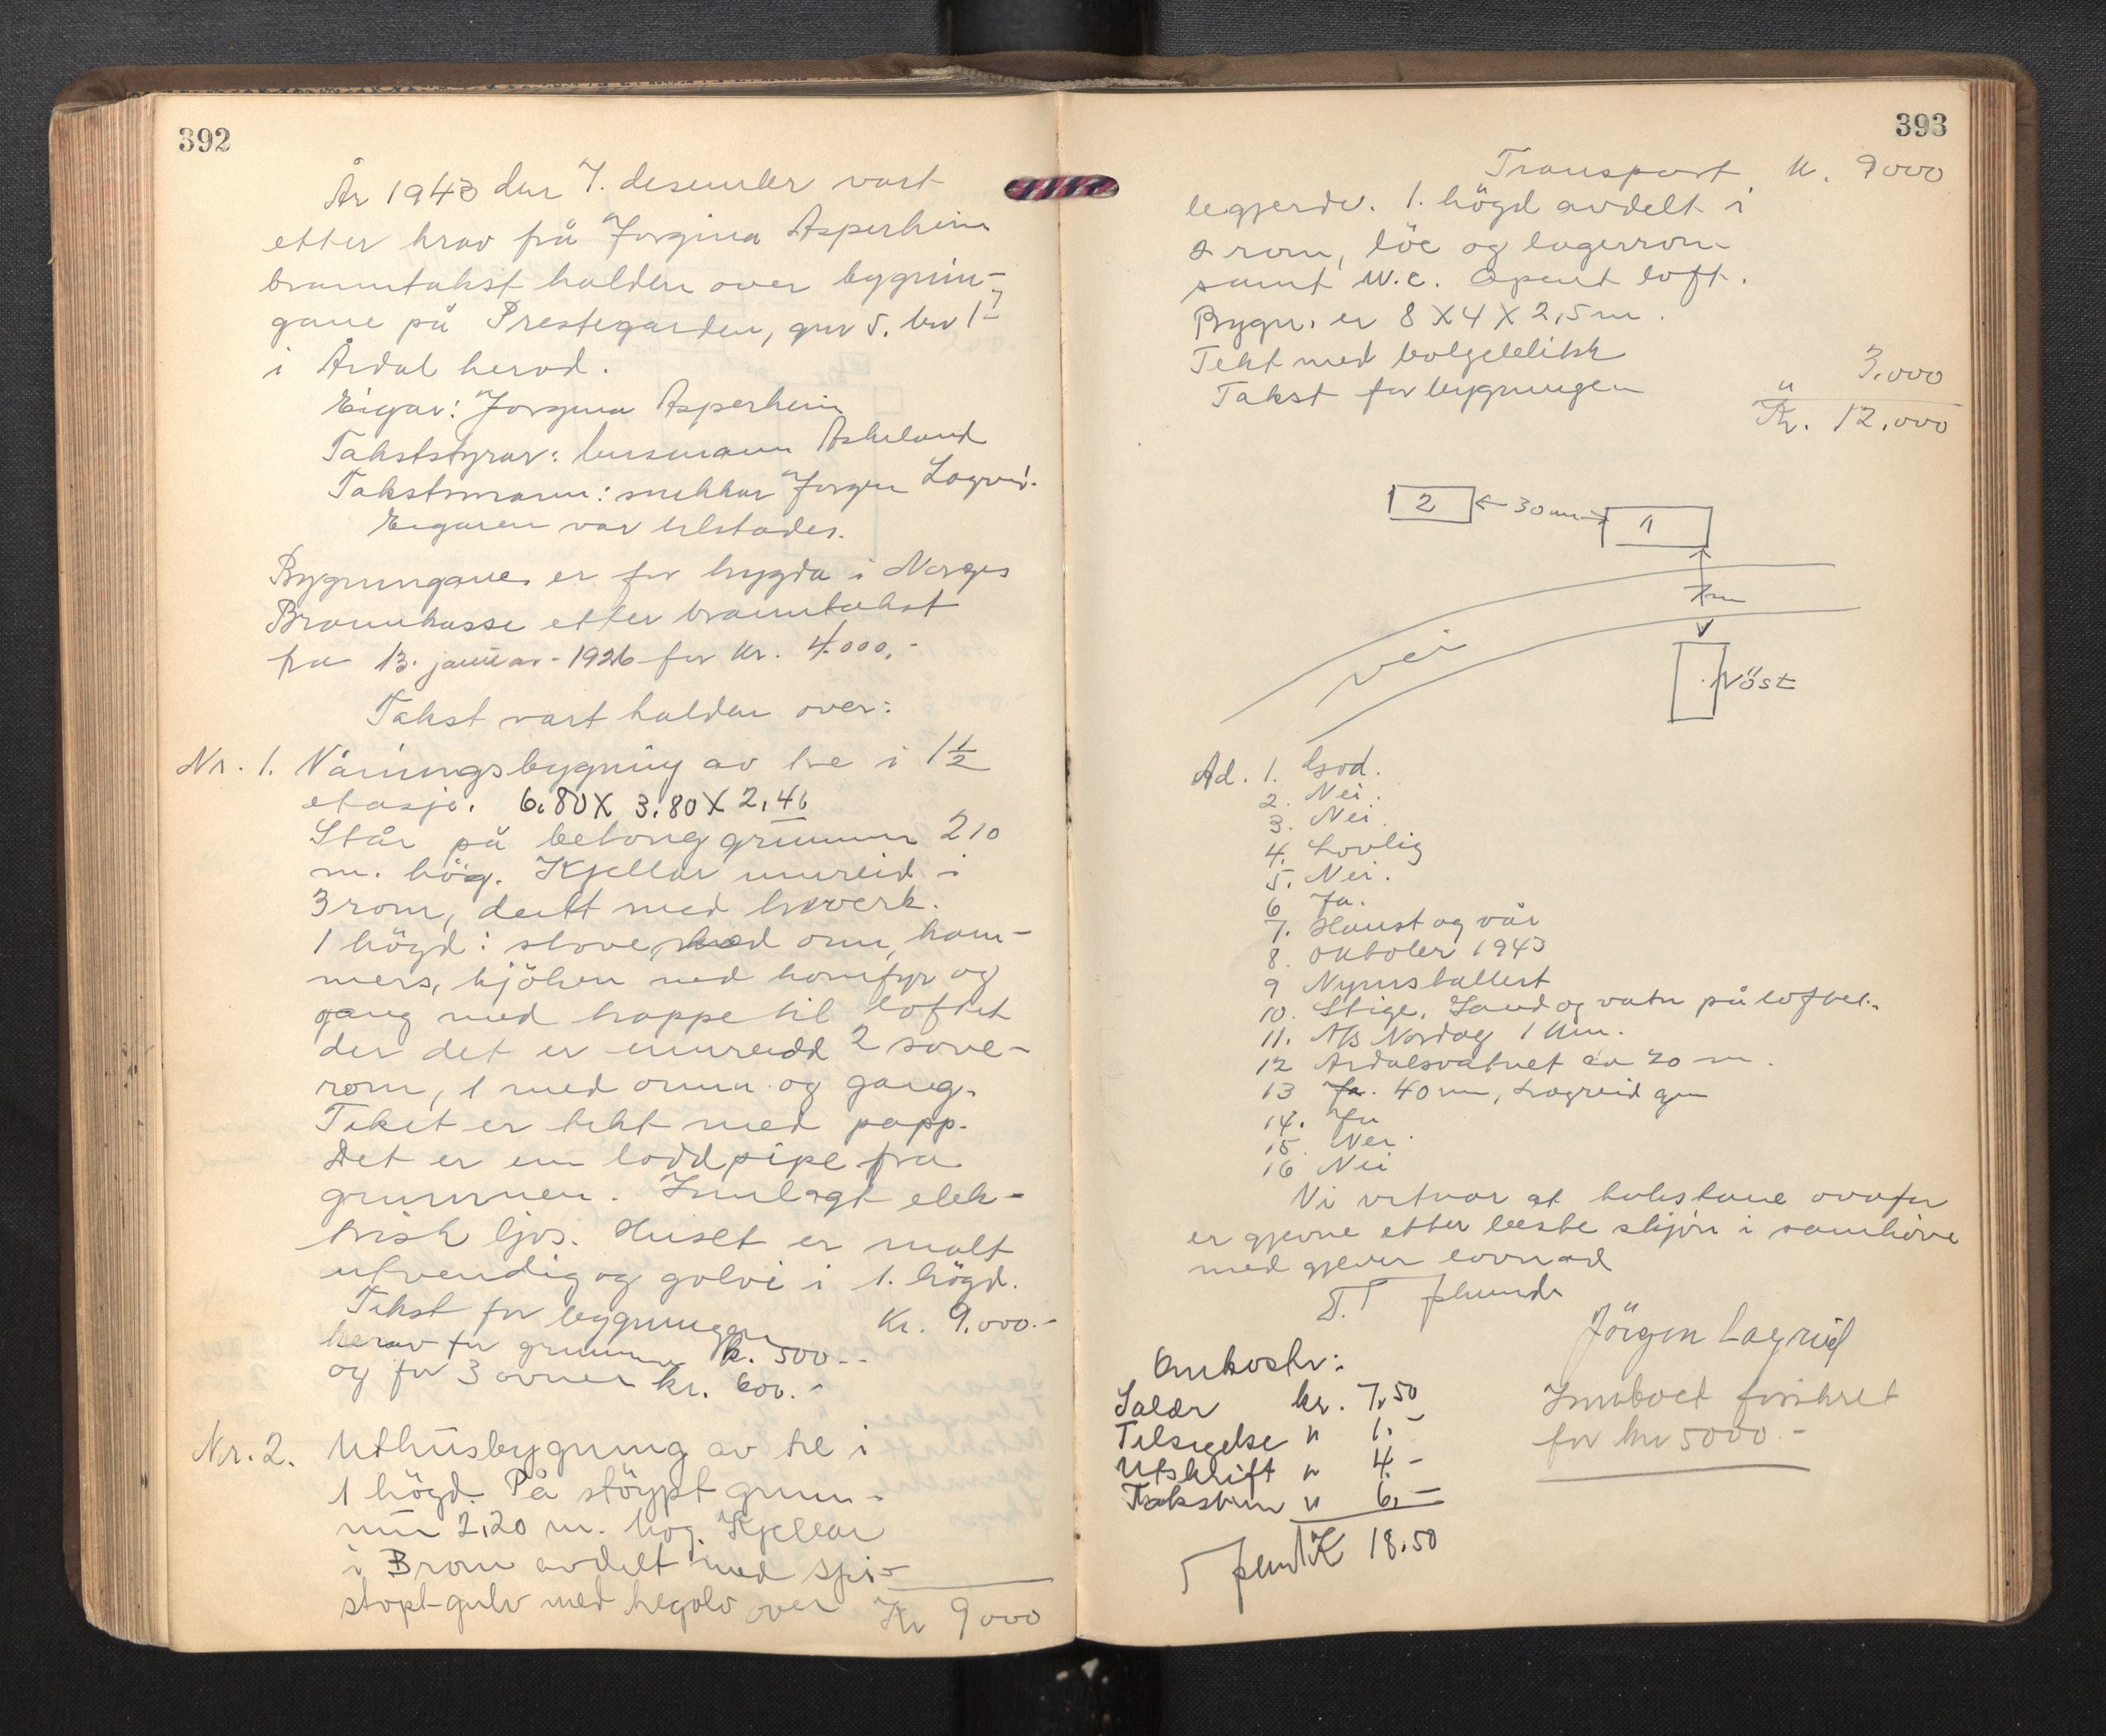 392
År 1943 den 7. desember vart
etter krav frå Jorgina Asperheim
branntakst halden over bygnin-
gane på Prestegarden, gnr 5. bnr 17
i Årdal herad.
Eigar: Jorgina Asperheim
Takststyrar: lensmann Askeland
Takstmann: snekkar Jørgen Lægreid.
Eigaren var tilstades.
Bygningane er før trygda i Norges
Brannkasse etter branntakst
fra 13. januar - 1926 for kr. 4.000.-
Takst vart halden over:
Nr. 1. Våningsbygning av tre i 1 1/2
etasje. 6.80 X 3.80 X 2.46
Står på betong grunnmur 210
m. hög. Kjellar innreid i
3 rom, delt med treverk.
1 högd: stove, med omn, kam-
mers, kjöken med komfyr og
gang med trappe til loftet
der det er innreidd 2 sove-
rom, 1 med omn og gang.
Taket er tekt med papp.
Det er ein loddpipe fra
grunnen. Innlagt elek-
trisk ljos. Huset er malt
utvendig og golvi i 1. högd.
Takst for bygningen Kr. 9.000.-
herav for grunnmur k. 500.-
og for 3 ovner kr. 600.-
Nr. 2. Uthusbygning av tre i
1 högd. På stöypt grunn-
mur 2,20 m. høg. Kjellar
i 3 rom avdelt med spi-
støpt gulv med tregolv over
Kr 9000
393
Transport kr. 9000
legjerde. 1. högd avdelt i
2 rom, löe og lagerrom
samt W.C. Opent loft.
Bygn. er 8 X 4 X 2,5 m.
Tekt med bølgeblikk
Takst for bygningen " 3.000
Kr. 12.000
2 ← 30 m → 1
7 m
vei
Nöst
Ad. 1. God.
2. Nei.
3. Nei.
4. Lovlig
5. Nei.
6 Ja.
7. Haust og vår
8. oktober 1943
9 Nyinstallert
10. Stige, Sand og vatn på loftet.
11. A/S Nordag 1 km.
12 Årdalsvatnet ca 20 m.
13 Ja. 40 m, Lægreid gm
14. Ja
15. Nei.
16 Nei
Vi vitnar at takstane ovafor
er gjevne etter beste skjön i samhöve
med gjeven lovnad
Jörgen Lægreid
Omkostn:
Salær kr. 7,50
Tilsigelse " 1.-
Utskrift " 4.-
Takstm " 6.-
K 18.50
Innboet forsikret
for kr 5000.-